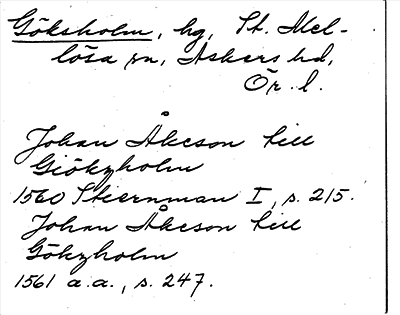 Göksholm, hg, St. Mel-
lösa sn, Askers hd,
Ör. l.
Johan Åkeson till
Giökzholm
1560 Stiernman I, s. 215.
Johan Åkeson till
Gökzholm
1561 a.a., s. 247.